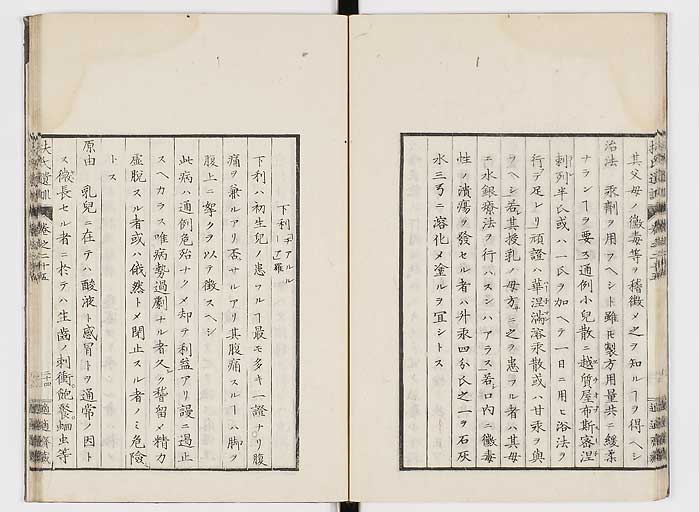 其父母ノ黴毒等ヲ稽徴メ之ヲ知ルヿヲ得ヘシ
治法 汞劑ヲ用フヘシト雖モ製方用量共ニ緩柔
ナランヿヲ要ス通例小兒散ニ越質屋布斯密涅
刺列半氏或ハ一氏ヲ加ヘテ一日ニ用ヒ浴法ヲ
行テ足レリ頑證ハ華涅満溶汞散或ハ甘汞ヲ與
フヘシ若其授乳ノ母方ニ之ヲ患フル者ハ其母
ニ水銀療法ヲ行ハスンハアラス若口内ニ黴毒
性ノ潰瘍ヲ發セル者ハ升汞四分氏之一ヲ石灰
水三ニ溶化メ塗ルヲ冝シトス
下利
下利ハ初生兒ノ患フルヿ最モ多キ一證ナリ腹
痛ヲ兼ルアリ否サルアリ其腹痛スルヿハ脚ヲ
腹上ニ攣クヲ以テ徴スヘシ
此病ハ通例危殆ナクメ却テ利益アリ謾ニ遏止
スヘカラス唯病勢過劇ナル者久ク稽留メ精力
虚脱スル者或ハ俄然トメ閉止スル者ノミ危險
トス
原由 乳兒ニ在テハ酸液ト感冒トヲ通常ノ因ト
ス稍長セル者ニ於テハ生齒ノ刺衝飽餐蛔虫等
扶氏遺訓 巻之二十五 三十四 適適齋藏